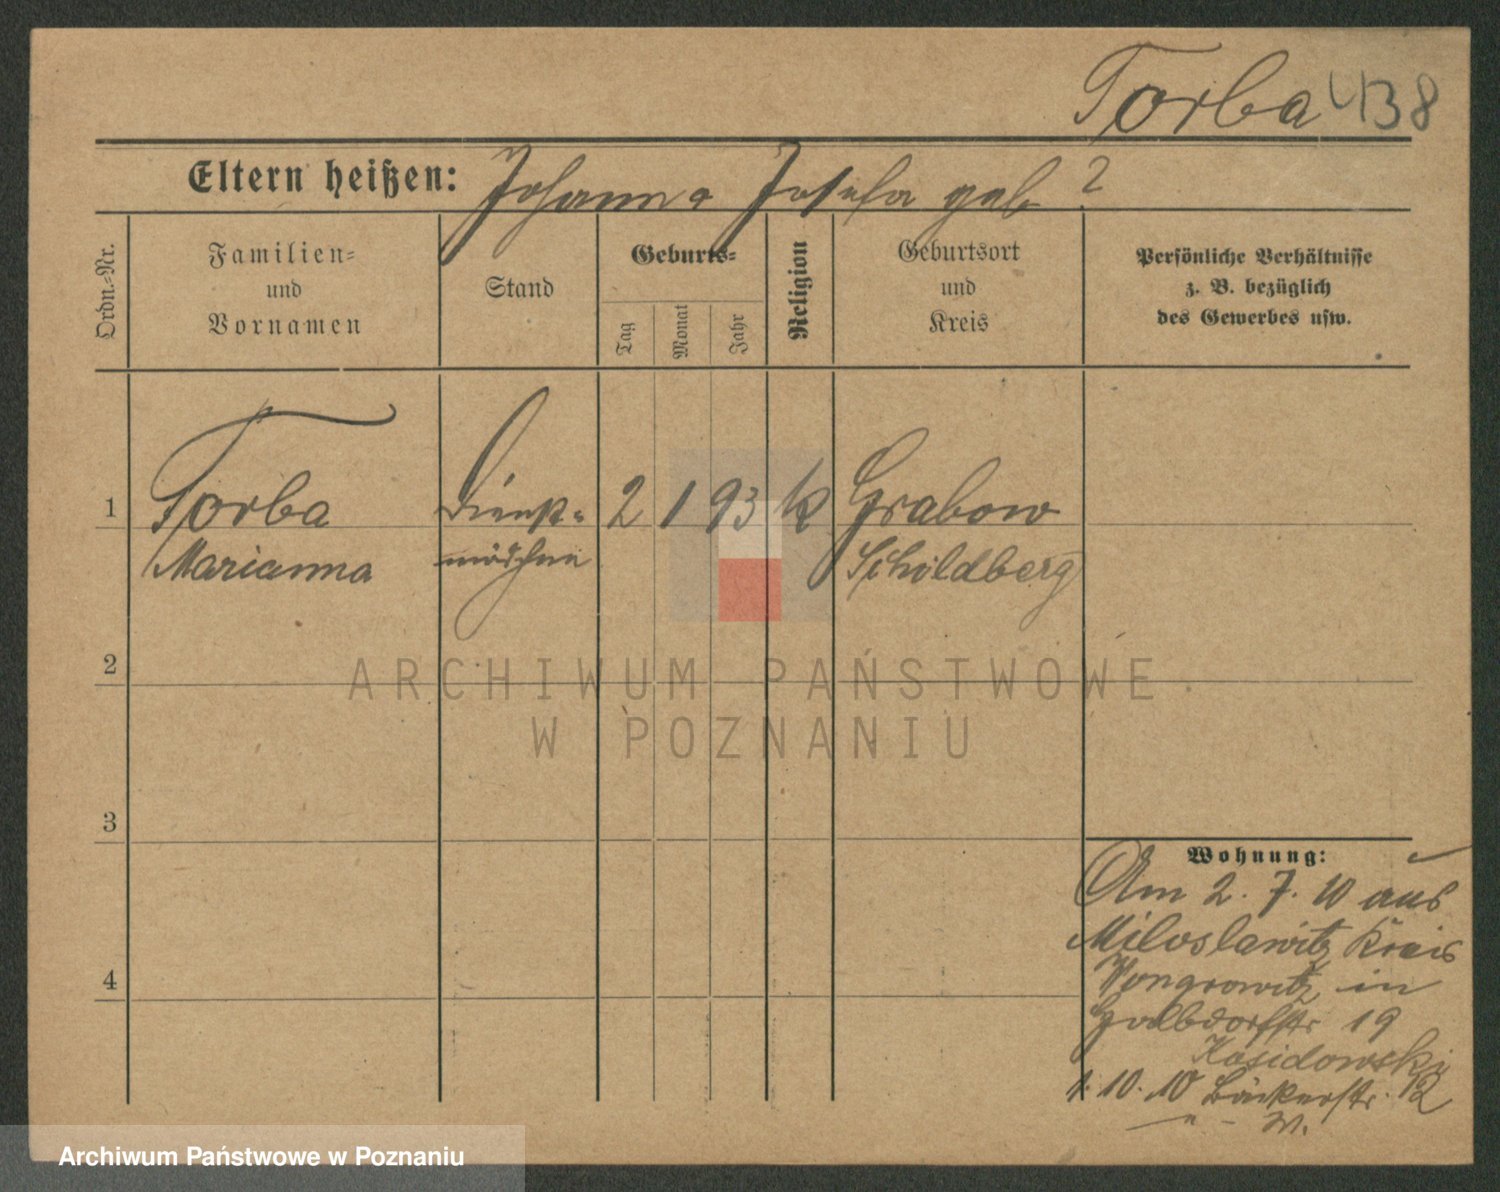 Torba 438
Eltern heißen: Johann & Josefa geb ?
Ordn.-Nr.
Familien-
und
Vornamen
Stand
Geburts-
Tag
Monat
Jahr
Religion
Geburtsort
und
Kreis
Persönliche Verhältnisse
z. B. bezüglich
des Gewerbes usw.
1 Torba Dienst- 2 1 93 k Grabow
Marianna mädchen Schildberg
2
3
4
Wohnung:
Am 2. 7. 10 aus
Miloslawitz Kreis
Wongrowitz in
Halbdorfstr 19
Kosidowski
1. 10. 10 Bäckerstr. 12
ARCHIWUM PAŃSTWOWE
W POZNANIU
Archiwum Państwowe w Poznaniu